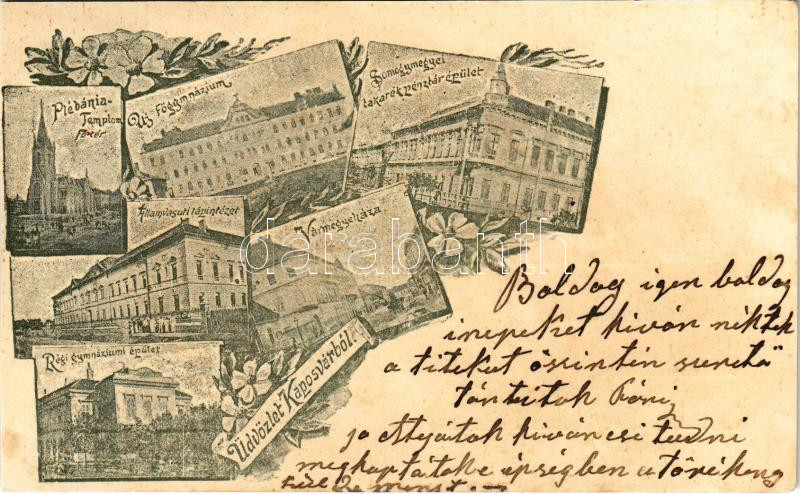 Plébánia-
Templom
főtér
Új főgymnázium
Somogymegyei
takarékpénztár épület
Államvasuti tápintézet
Vármegyeháza
Régi gymnáziumi épület
Üdvözlet Kaposvárból!
darabanth
Boldog igen boldog
inepeket kiván néktek
a titeket őszintén szerető
tántitok
ja Atyátok kiváncsi tudni
megkaptátok e épségben a törékeny